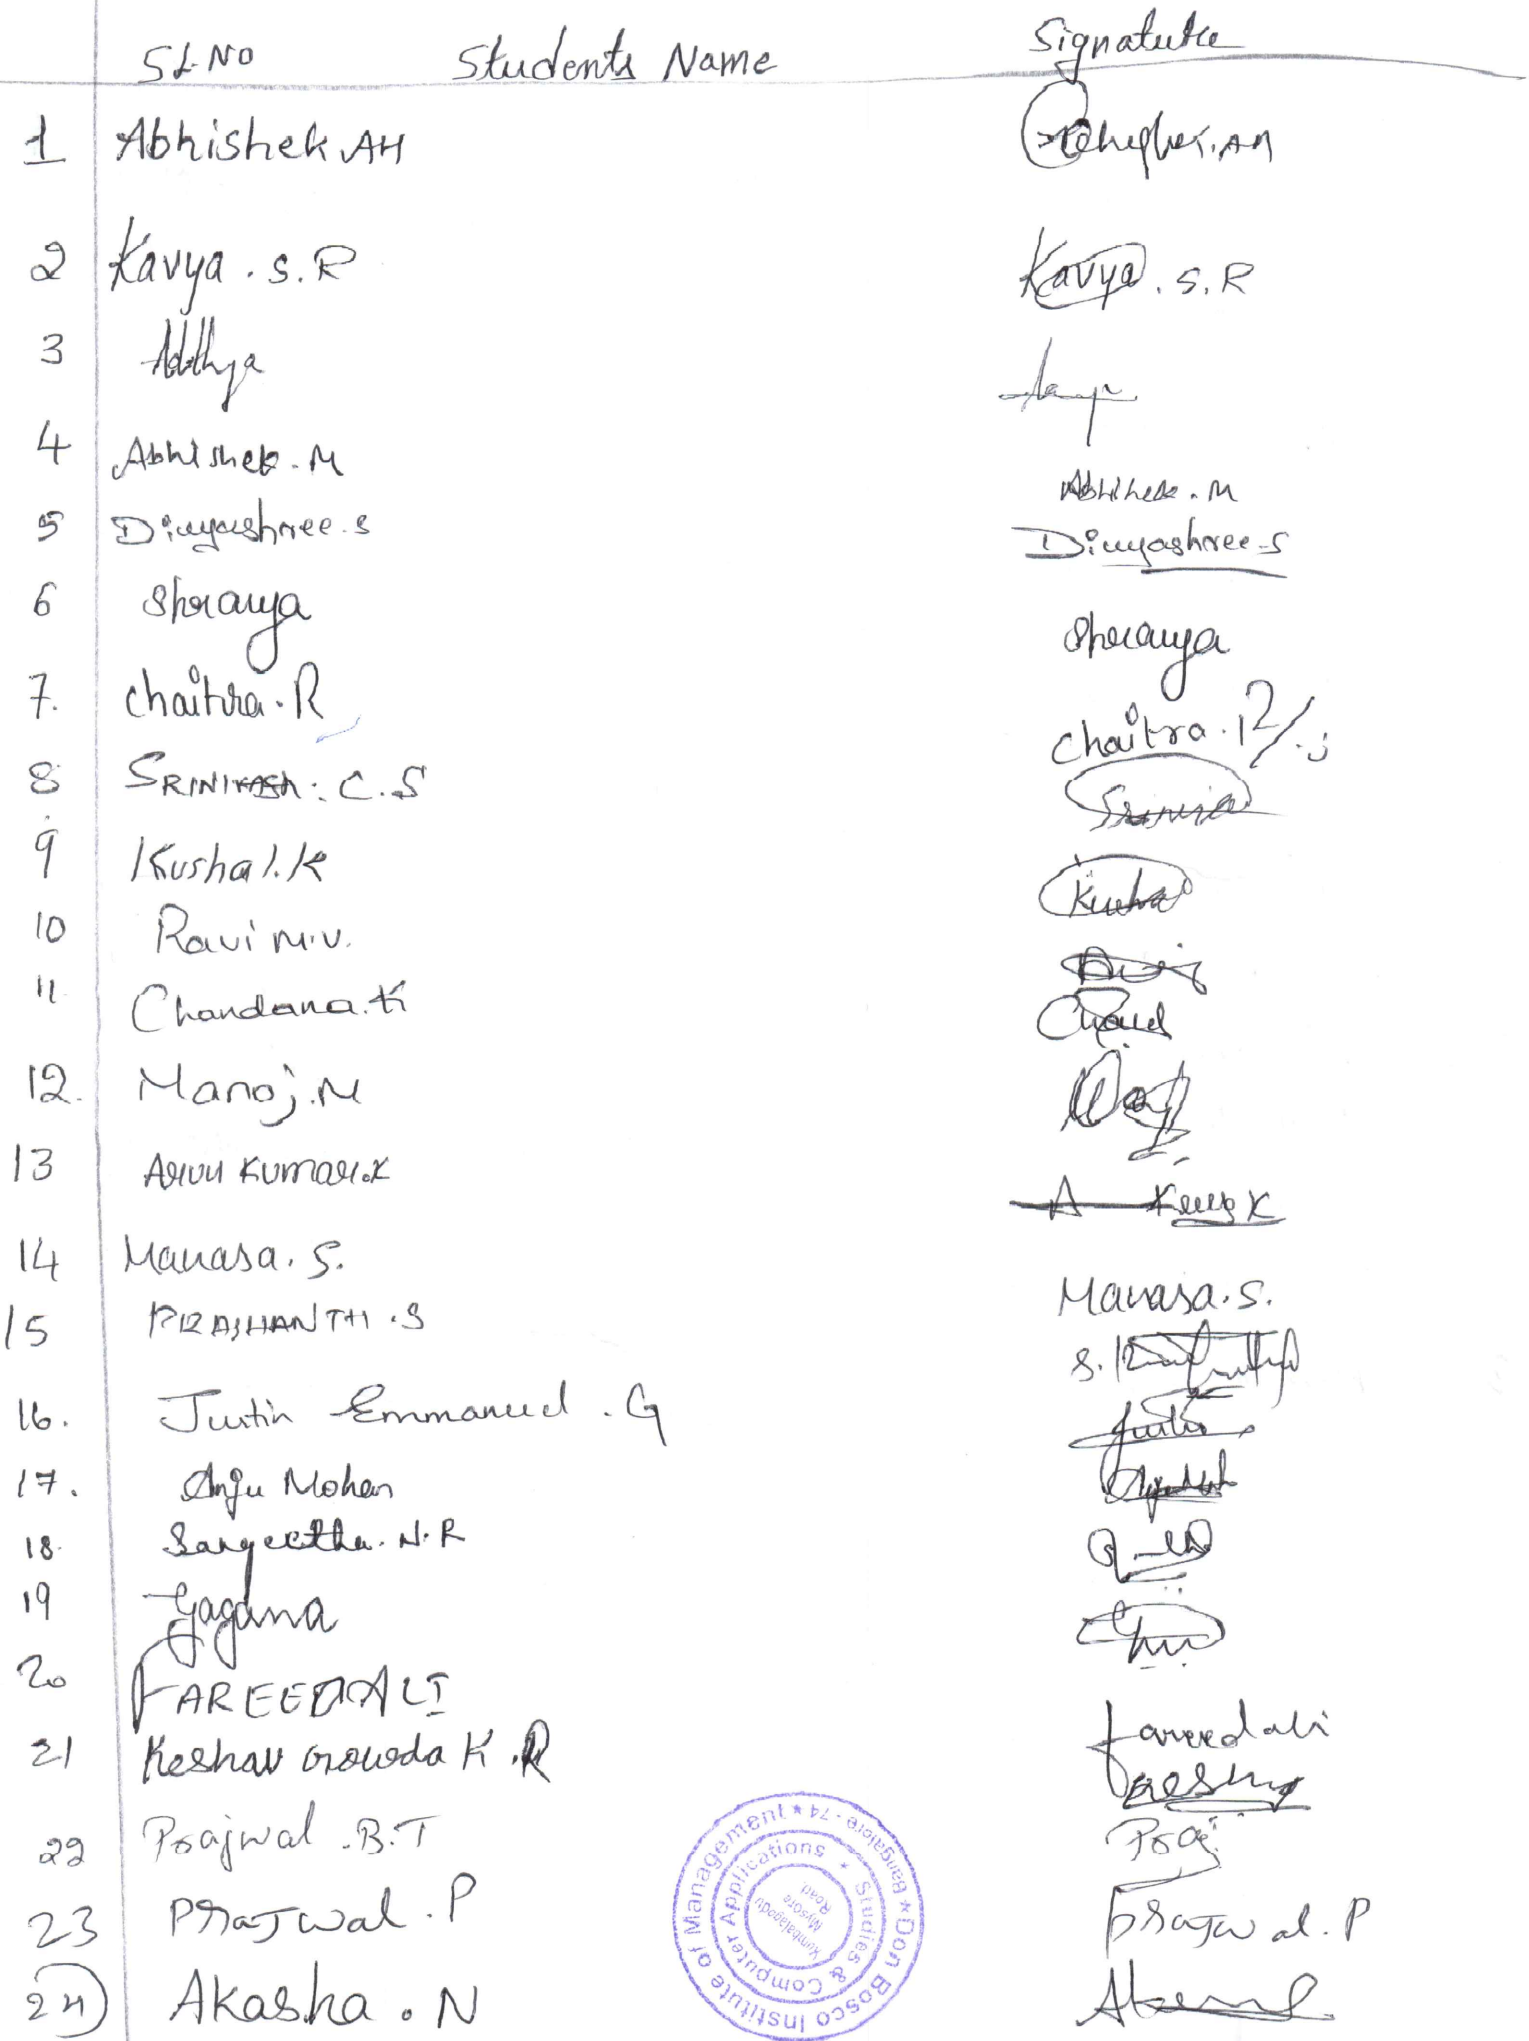 SL.NO Students Name Signature
1 Abhishek AH
2 Kavya . S. R Kavya . S. R
3 Adithya
4 Abhishek . M Abhishek . M
5 Divyashree . S Divyashree . S
6 Shravya Shravya
7. Chaitra . R Chaitra . R
8 SRINIVASA : C . S
9 Kushal . K Kushal
10 Ravi M.V.
11 Chandana . K Chand
12. Manoj . M
13 Arun Kumar . K
14 Manasa . S. Manasa . S.
15 PRASHANTH . S
16. Justin Emmanuel . G Justin
17. Anju Mohan
18. Sangeetha . N . R
19 Gagana
20 FAREED ALI fareed ali
21 Keshav Gowda K . R
22 Prajwal . B . T Praj
23 Prajwal . P Prajwal . P
24 Akasha . N
Don Bosco Institute of Management Studies & Computer Applications
Kumbalagodu Mysore Road,
Bangalore - 74